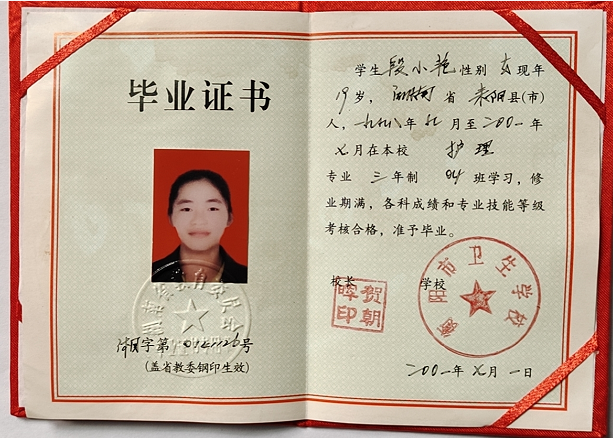 毕业证书
字第 号
(盖省教委钢印生效)
学生段小艳性别女现年
19岁, 湖南省耒阳县(市)
人, 一九九八年九月至二00一年
七月在本校 护理
专业三年制 班学习, 修
业期满, 各科成绩和专业技能等级
考核合格, 准予毕业。
校长 学校
贺朝晖印
市卫生学校
二00一年七月一日